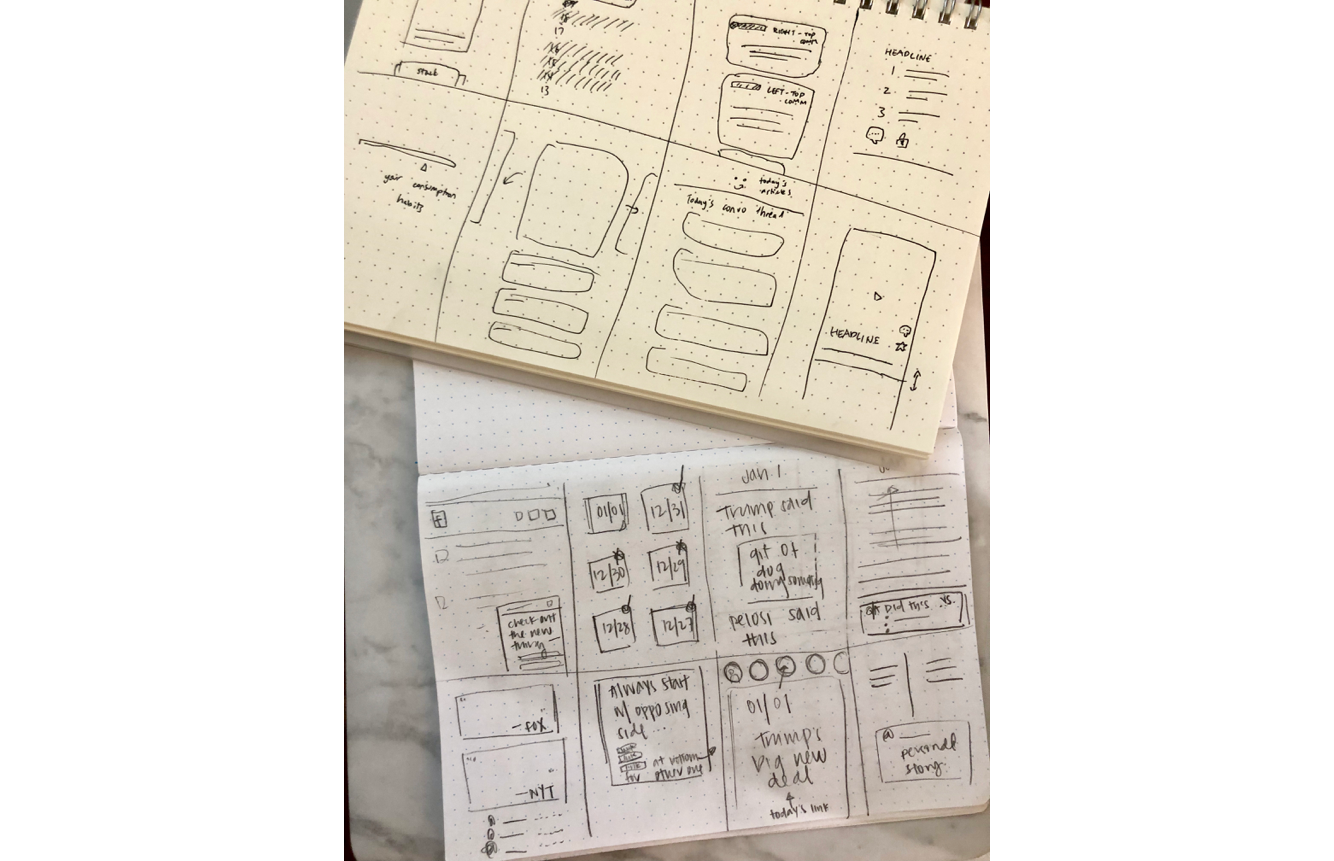 start
17
13
RIGHT-TOP
comm
LEFT-TOP
comm
HEADLINE
1
2
3
your consumption
habits
today's
articles
Today's convo thread
HEADLINE
check out
the new
thing
01/01
12/31
12/30
12/29
12/28
12/27
Jan 1
Trump said
this
dog
doing something
pelosi said
this
Did this .vs.
-FOX
-NYT
Always start
w/ opposing
side...
at bottom
for other one
01/01
Trump's
big new
deal
today's link
@
personal
story